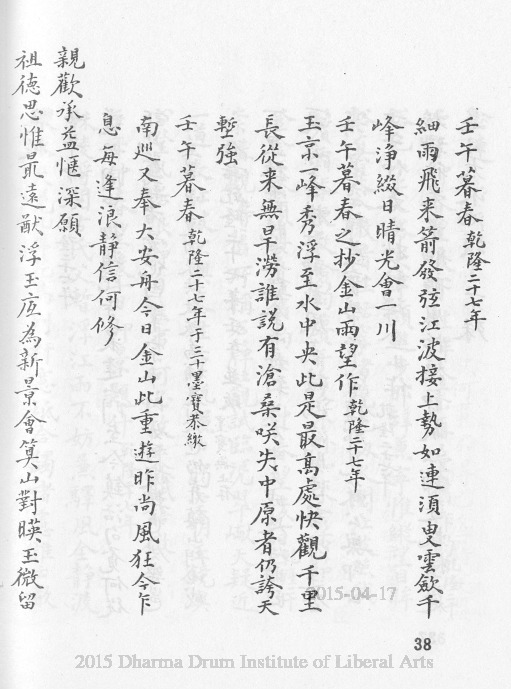 壬午暮春乾隆二十七年
細雨飛来箭發弦江波接上勢如連須臾雲斂千
峰浄綴日晴光會一川
壬午暮春之抄金山雨望作乾隆二十七年
玉京一峰秀浮至水中央此是最高處快觀千里
長從来無旱澇誰說有滄桑咲失中原者仍誇天
塹強
壬午暮春乾隆二十七年于三十墨寶恭繳
南巡又奉大安舟今日金山此重遊昨尚風狂今乍
息每逢浪靜信何修
親歡承益愜深願
祖德思惟最遠猷浮玉応為新景會筭山對暎玉微留
2015-04-17
38
2015 Dharma Drum Institute of Liberal Arts